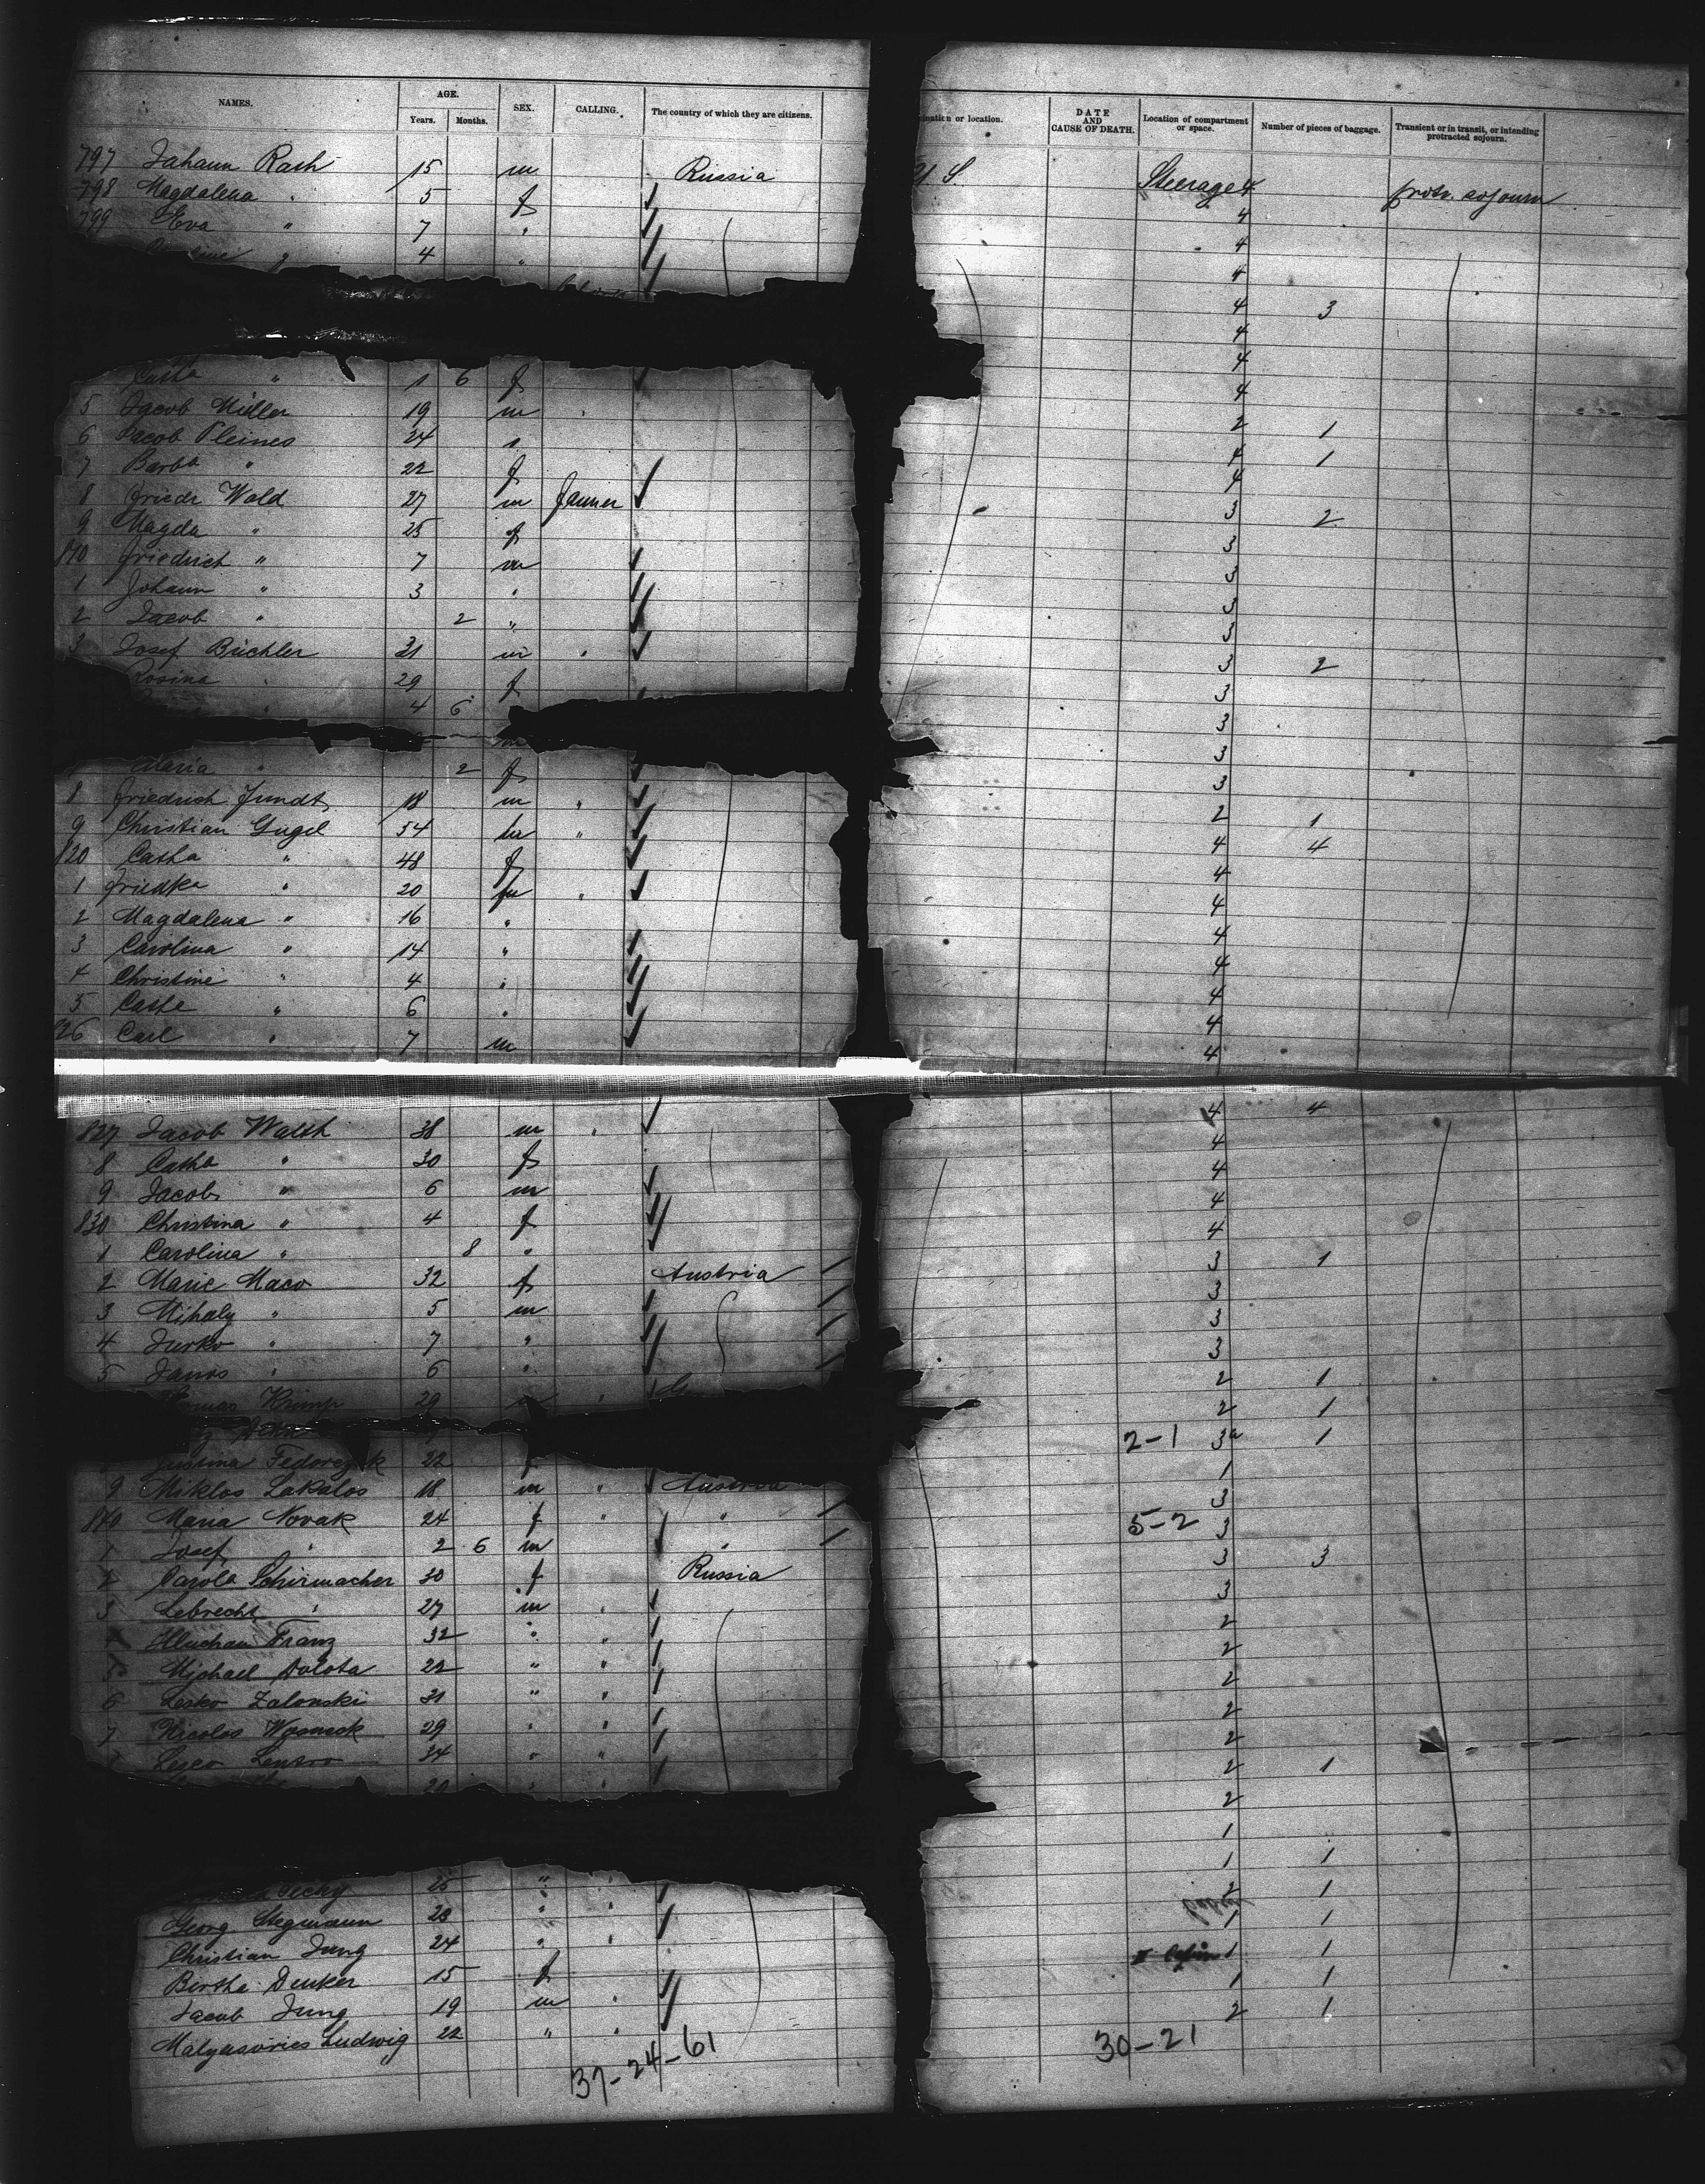 NAMES. AGE. Years. Months. SEX. CALLING. The country of which they are citizens. ination or location. DATE AND CAUSE OF DEATH. Location of compartment or space. Number of pieces of baggage. Transient or in transit, or intending protracted sojourn.
797 Johann Rath 15 m Russia U S. Steerage 4 protr. sojourn
798 Magdalena " 5 f 4
799 Eva " 7 " 4
4 " 4
4 3
4
4
Catha " 1 6 f 4
5 Jacob Müller 19 m 2 1
6 Jacob Pleines 24 " 4 1
7 Barba " 22 f 4
8 Friedr Wald 27 m Farmer 3 2
9 Magda " 25 f 3
810 Friedrich " 7 m 3
1 Johann " 3 " 3
2 Jacob " 2 " 3
3 Josef Büchler 31 m " 3 2
Rosina " 29 f 3
" 4 6 3
m 3
Maria " 2 f 3
8 Friedrich Jundt 18 m " 2 1
9 Christian Gugel 54 m " 4 4
820 Catha " 48 f 4
1 Friedka " 20 " 4
2 Magdalena " 16 " 4
3 Carolina " 14 " 4
4 Christine " 4 " 4
5 Cathe " 6 " 4
826 Carl " 7 m 4
827 Jacob Walth 38 m " 4 4
8 Catha " 30 f 4
9 Jacob " 6 m 4
830 Christina " 4 f 4
1 Carolina " 8 " 4
2 Marie Maco 32 f Austria 3 1
3 Mihaly " 5 m 3
4 Jurko " 7 " 3
5 Janos " 6 " 3
Krump 29 " 2 1
2 1
Justina Fedorczak 22 f 2-1 3a 1
9 Miklos Lakatos 18 m " Austria 1
840 Maria Novak 24 f " " 3
1 Josef " 2 6 m " 5-2 3
2 Carola Schirmacher 30 f Russia 3 3
3 Lebrecht " 27 m " 3
4 Hluchan Franz 32 " " 2
5 Michael Dolota 22 " " 2
6 Lesko Zalonski 31 " " 2
7 Nicolos Wosnick 29 " " 2
Lesco 34 " " 2
20 " " 2 1
2
1
Pecky 25 " " 1 1
Georg Stegmann 28 " " 2 1
Christian Jung 24 " 1 1
Bertha Denker 15 f 1 1
Jacob Jung 19 m " 1 1
Ludwig 22 " " 2 1
37-24-61 30-21